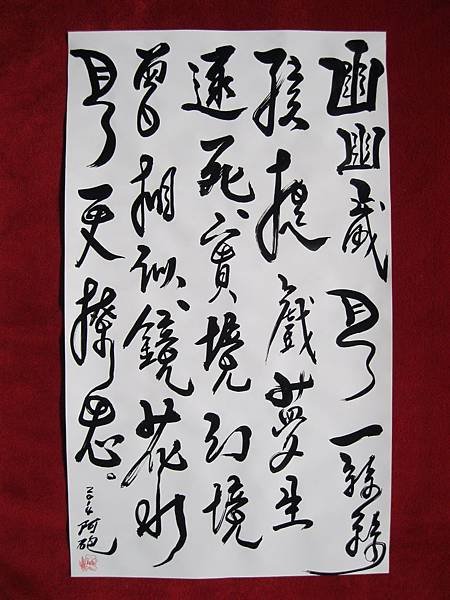 幽幽歲月一絲絲
孩提戲夢生
逮死實境幻境
曾相似鏡花水
月更撩思。
2014 阿砲